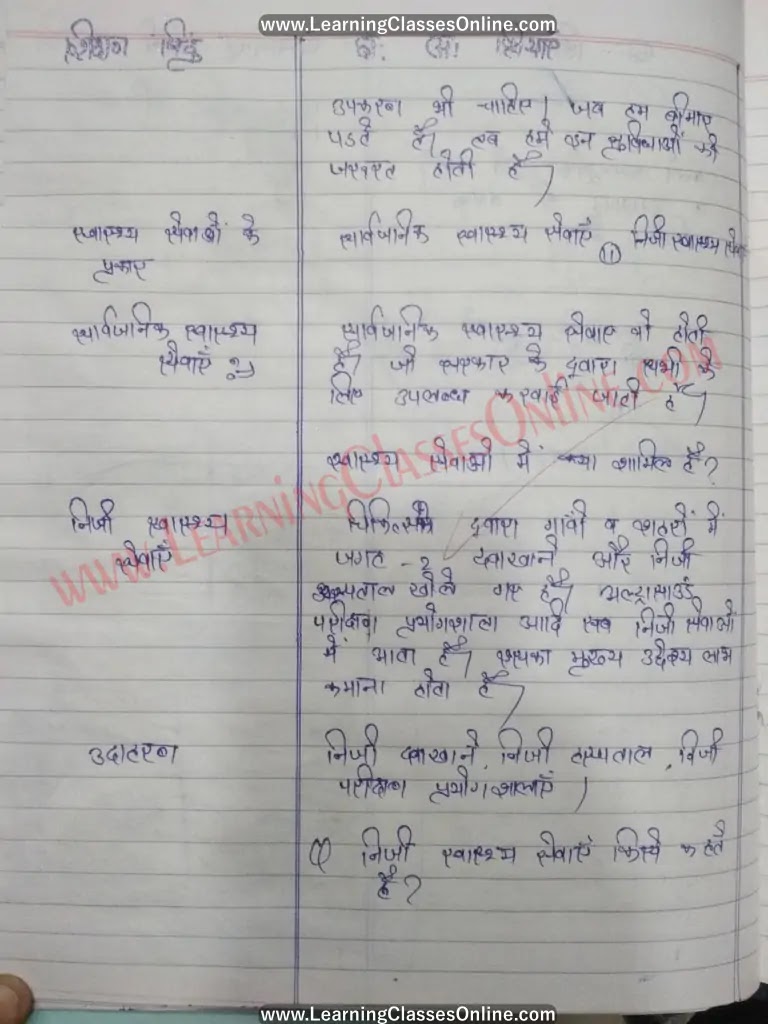 www.LearningClassesOnline.com
शिक्षण बिंदु छा. अ. क्रियाए
उपकरण भी चाहिए। जब हम बीमार
पडते हैं। तब हमे इन सुविधाओं की
जरूरत होती है।
स्वास्थ्य सेवाओं के
प्रकार
सार्वजनिक स्वास्थ्य सेवाएँ (ii) निजी स्वास्थ्य सेवा
सार्वजनिक स्वास्थ्य
सेवाएँ :-
सार्वजनिक स्वास्थ्य सेवाए वो होती
है। जो सरकार के द्वारा सभी के
लिए उपलब्ध करवाई जाती है।
स्वास्थ्य सेवाओ में क्या शामिल है?
निजी स्वास्थ्य
सेवाएँ
चिकित्सकों द्वारा गांवों व शहरों में
जगह - 2 दवाखाने और निजी
अस्पताल खोले गए हैं। अल्ट्रासाउंड
परीक्षण प्रयोगशाला आदि सब निजी सेवाओं
में आता है। इसका मुख्य उद्देश्य लाभ
कमाना होता है।
उदाहरण
निजी दवाखाने, निजी हस्पताल, निजी
परीक्षण प्रयोगशालाएँ।
निजी स्वास्थ्य सेवाएँ किसे कहते
है?
www.LearningClassesOnline.com
www.LearningClassesOnline.com